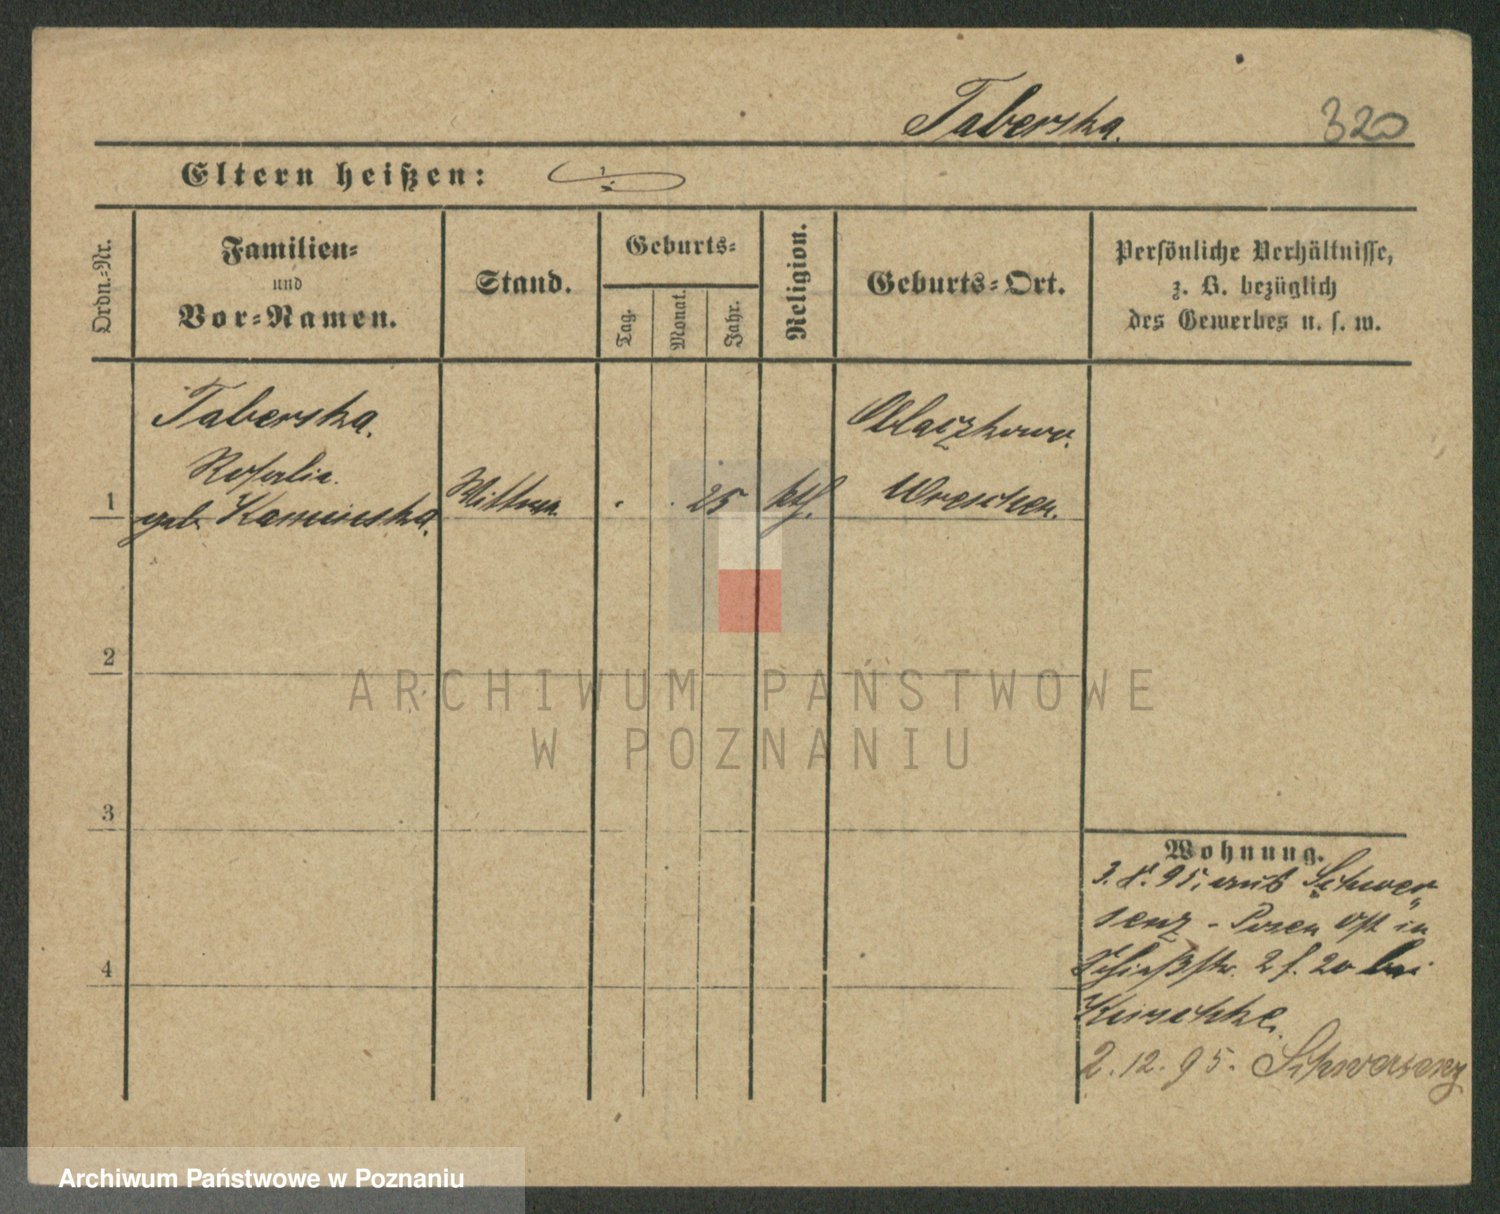 Taberska.
320
Eltern heißen:
Ordn.-Nr.
Familien-
und
Vor-Namen.
Stand.
Geburts-
Tag.
Monat.
Jahr.
Religion.
Geburts-Ort.
Persönliche Verhältnisse,
z. B. bezüglich
des Gewerbes u. s. w.
1
Taberska.
Rosalia.
geb. Kaminska.
Wittwe
25
kth.
Wreschen.
2
3
4
Wohnung.
3. 95, aus Schwer-
senz - Posen Ost in
Schießstr. 2 f. 20 bei
2.12.95. Schwersenz
ARCHIWUM PAŃSTWOWE
W POZNANIU
Archiwum Państwowe w Poznaniu